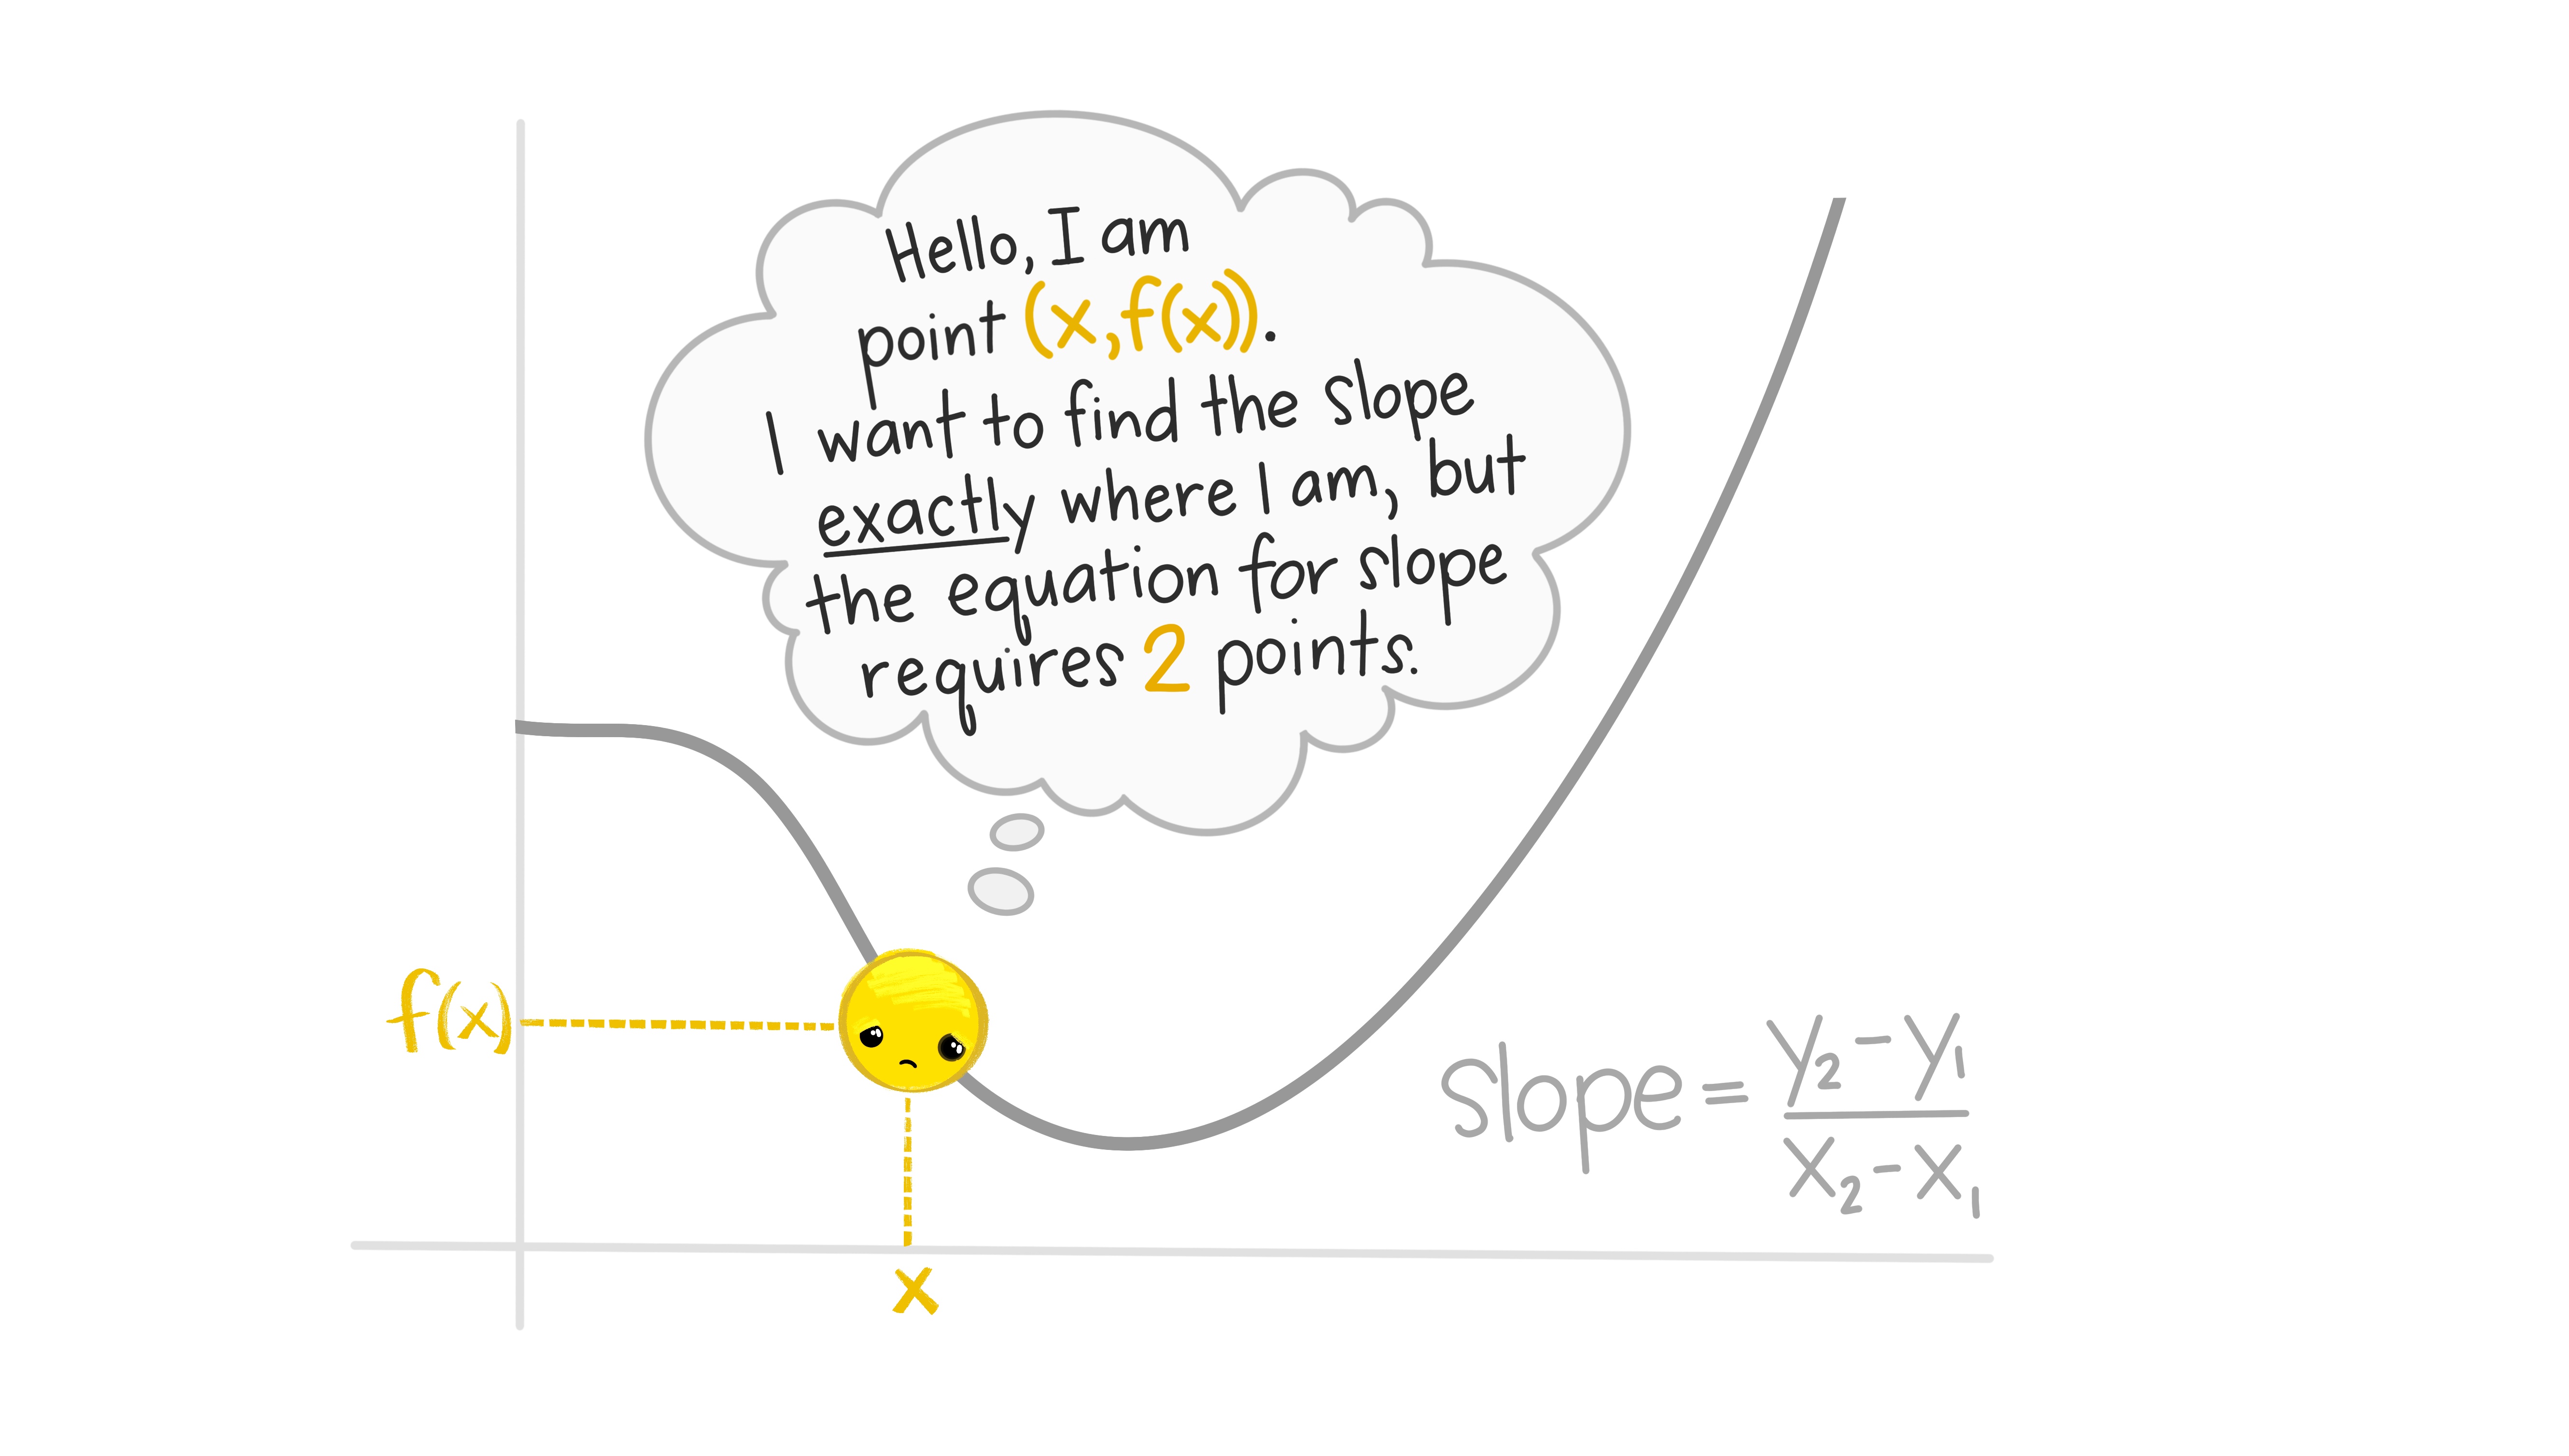 Hello, I am
point (x,f(x)).
I want to find the slope
exactly where I am, but
the equation for slope
requires 2 points.
f(x)
x
slope = y₂ - y₁
x₂ - x₁